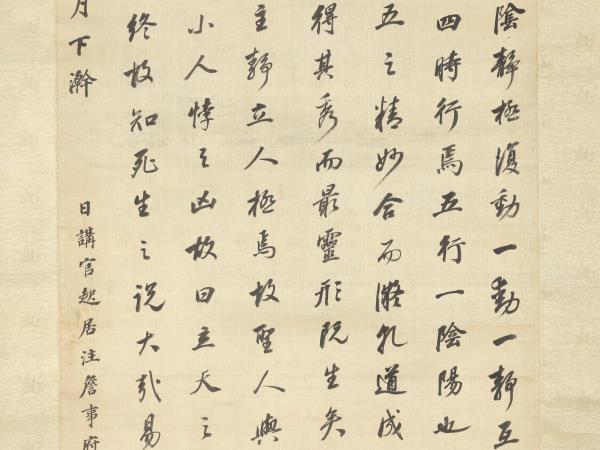 陰静極復動一動一静互
四時行焉五行一陰陽也
五之精妙合而凝乹道成
得其秀而最靈形既生矣
主静立人極焉故聖人與
小人悖之凶故曰立天之
終故知死生之说大哉易
月下澣
日講官起居注詹事府